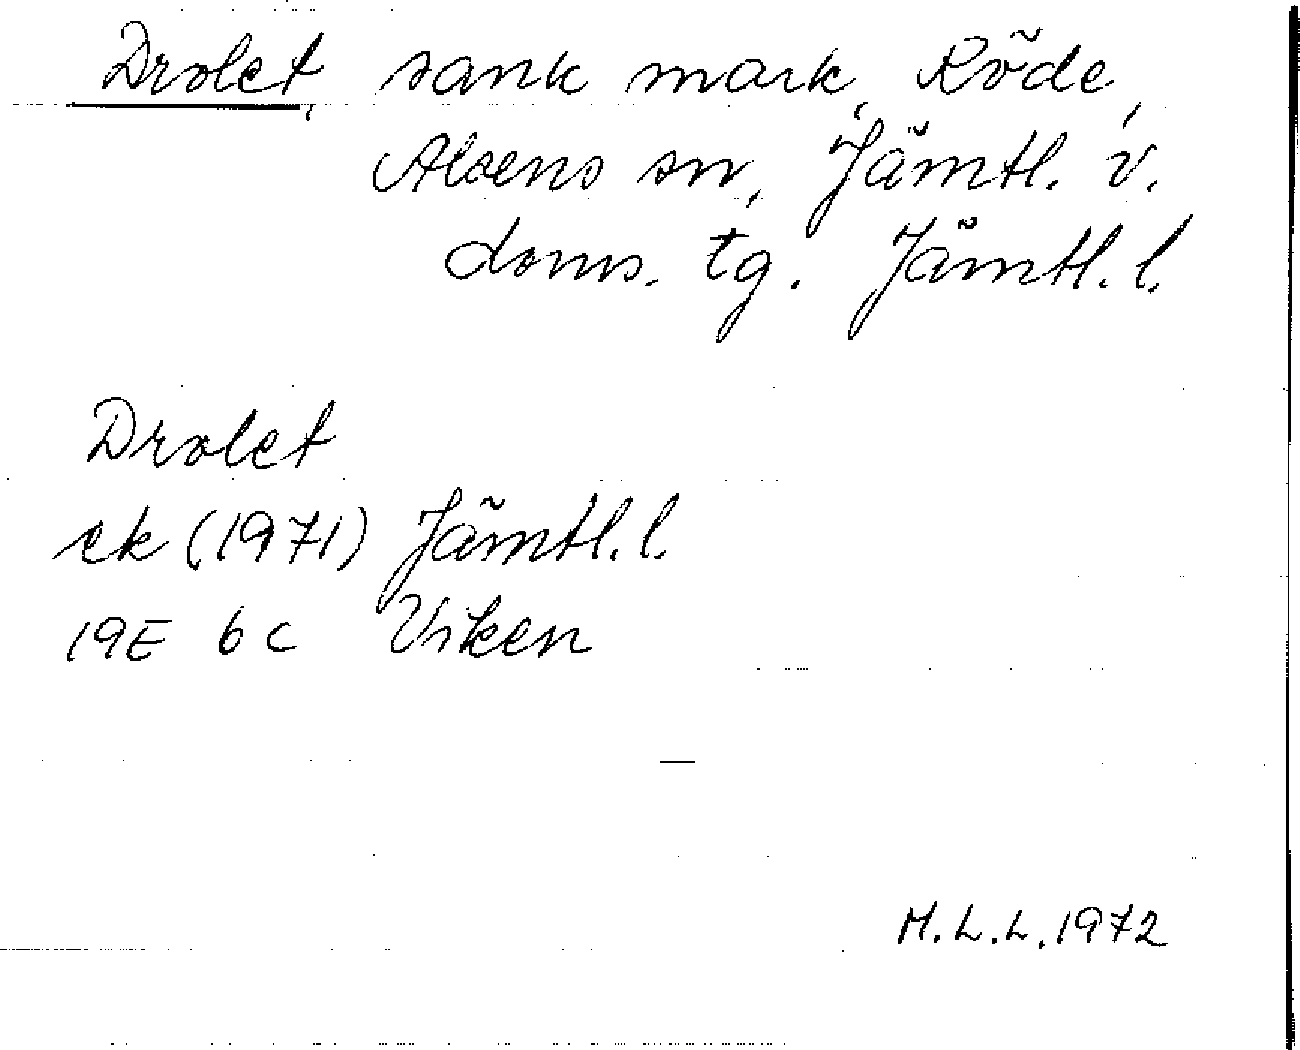 Drolet, sank mark, Röde,
Alsens sn, Jämtl. v.
doms. tg. Jämtl. l.
Drolet
ek (1971) Jämtl. l.
19E 6c Viken
M.L.L. 1972